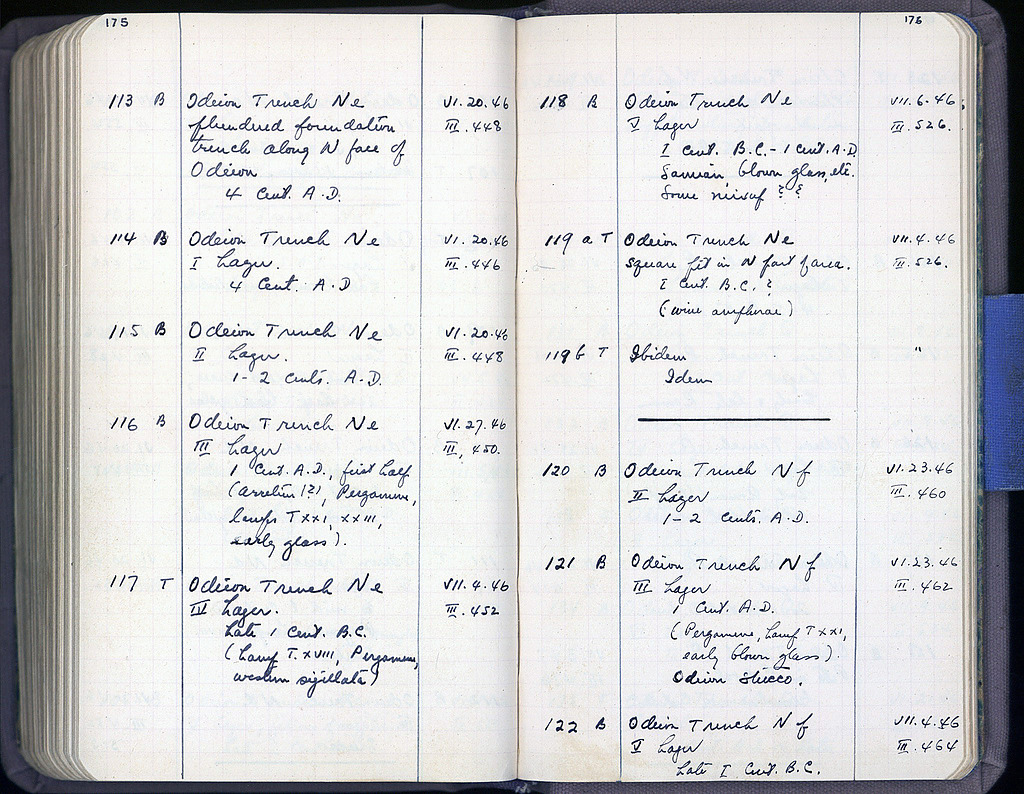 175
113 B Odeion Trench Ne VI.20.46
plundered foundation III.448
trench along N face of
Odeion
4 Cent. A.D.
114 B Odeion Trench Ne VI.20.46
I Lager. III.446
4 Cent. A.D
115 B Odeion Trench Ne VI.20.46
II Lager. III.448
1-2 Cents. A.D.
116 B Odeion Trench Ne VI.27.46
III Lager III,450.
1 Cent. A.D., first half
(Arretin(?), Pergamene,
lamps T XXI, XXIII,
early glass).
117 T Odeion Trench Ne VII.4.46
IV Lager. III.452
Late 1 Cent. B.C.
(Lamp T.XVIII, Pergamene,
western sigillata)
176
118 B Odeion Trench Ne VII.6.46
V Lager III.526.
I Cent. B.C.-1 Cent. A.D.
Samian, blown glass, etc.
Some ? ?
119 a T Odeion Trench Ne VII.4.46
Square pit in N part of area. III.526.
I Cent. B.C.?
(wine amphorae)
119 b T Ibidem "
Idem
120 B Odeion Trench Nf VI.23.46
II Lager III.460
1-2 Cents. A.D.
121 B Odeion Trench Nf VI.23.46
III Lager III.462
1 Cent. A.D.
(Pergamene, Lamp T XXI,
early blown glass).
Odeion stucco.
122 B Odeion Trench Nf VII.4.46
V Lager III.464
Late I Cent. B.C.